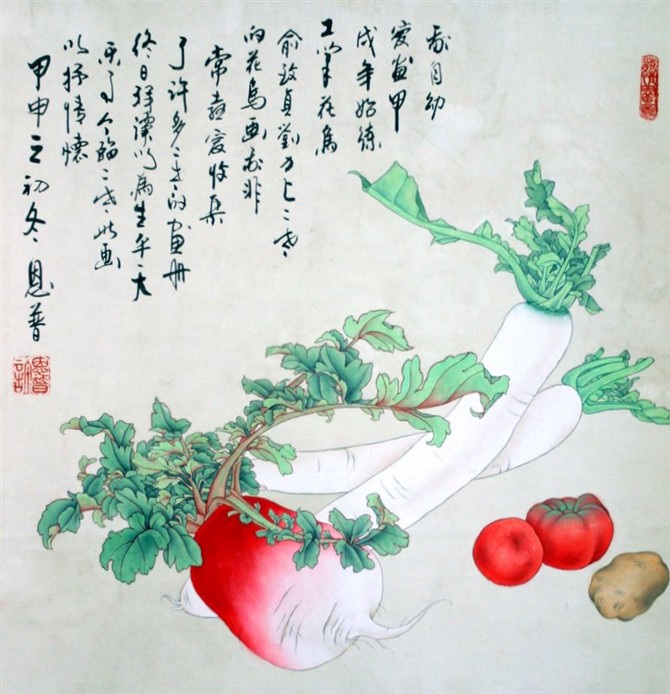 我自幼
爱画甲
戌年始练
工笔花鸟
俞致贞刘力上二老
的花鸟画我非
常喜爱收集
了许多二老的画册
终日择课以为生平一大
乐事今临二老此画
以抒情怀
甲申之初冬 恩普